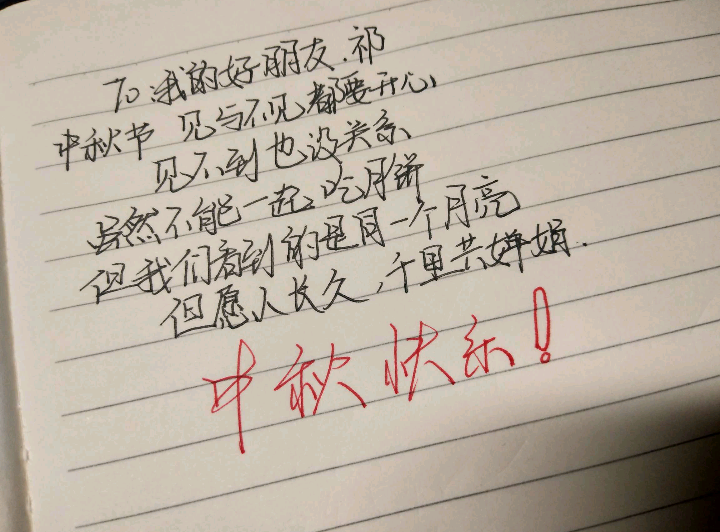 To:我的好朋友.祁
中秋节 见与不见都要开心,
见不到也没关系
虽然不能一起吃月饼
但我们看到的是同一个月亮
但愿人长久,千里共婵娟.
中秋快乐!